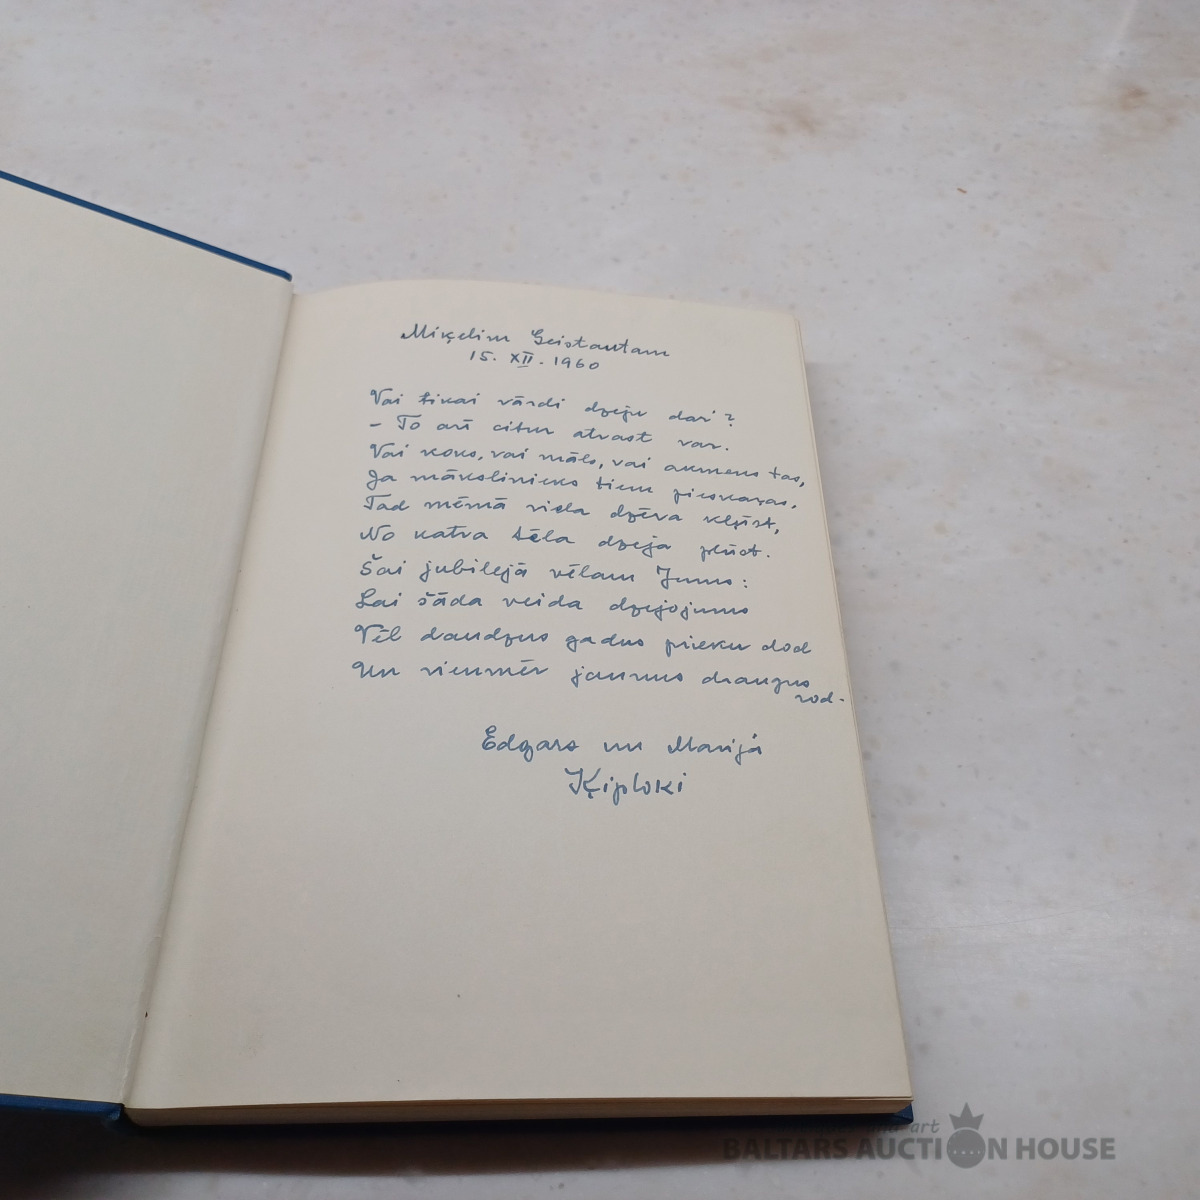 Miķelim Geistautam
15. XII. 1960
Vai tikai vārdi dzeju dari?
- To arī citur atrast var.
Vai koks, vai māls, vai akmens tas,
Ja mākslinieks tiem pieskaŗas,
Tad mēmā viela dzīva kļūst,
No katra tēla dzeja plūst.
Šai jubilejā vēlam Jums:
Lai šāda veida dzejojums
Vēl daudzus gadus prieku dod
Un vienmēr jaunus draugus
rod.
Edgars un Marija
Ķiploki
art
BALTARS AUCTION HOUSE